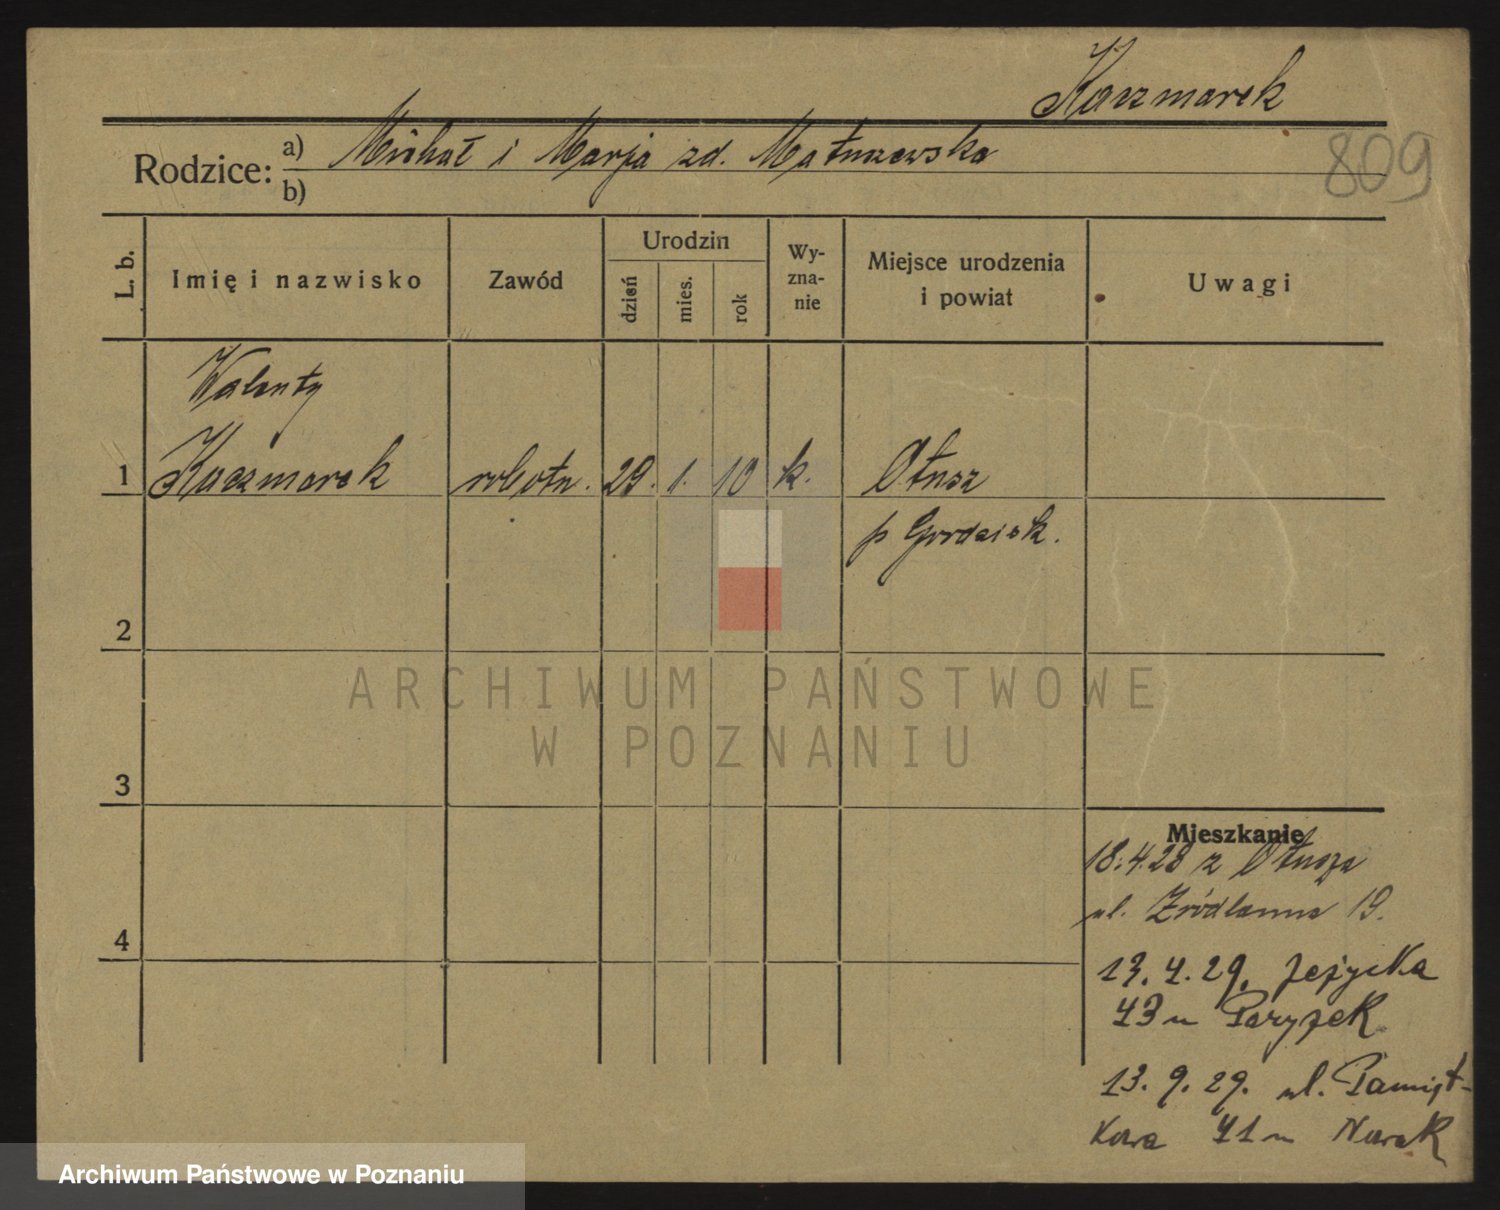 Kaczmarek
809
Rodzice: a) Michał i Marja zd. Matuszewska
b)
L. b.
Imię i nazwisko
Zawód
Urodzin
dzień
mies.
rok
Wy-
zna-
nie
Miejsce urodzenia
i powiat
Uwagi
Walenty
1 Kaczmarek robotn. 29. 1. 10 k. Otusz
p Grodzisk.
2
3
4
ARCHIWUM PAŃSTWOWE
W POZNANIU
Mieszkanie
18.4.28 z Otusza
ul. Źródlanna 19.
13.4.29. Jeżycka
43 u Paryzek
13.9.29. ul. Pamiąt-
kowa 41 u Nowak
Archiwum Państwowe w Poznaniu